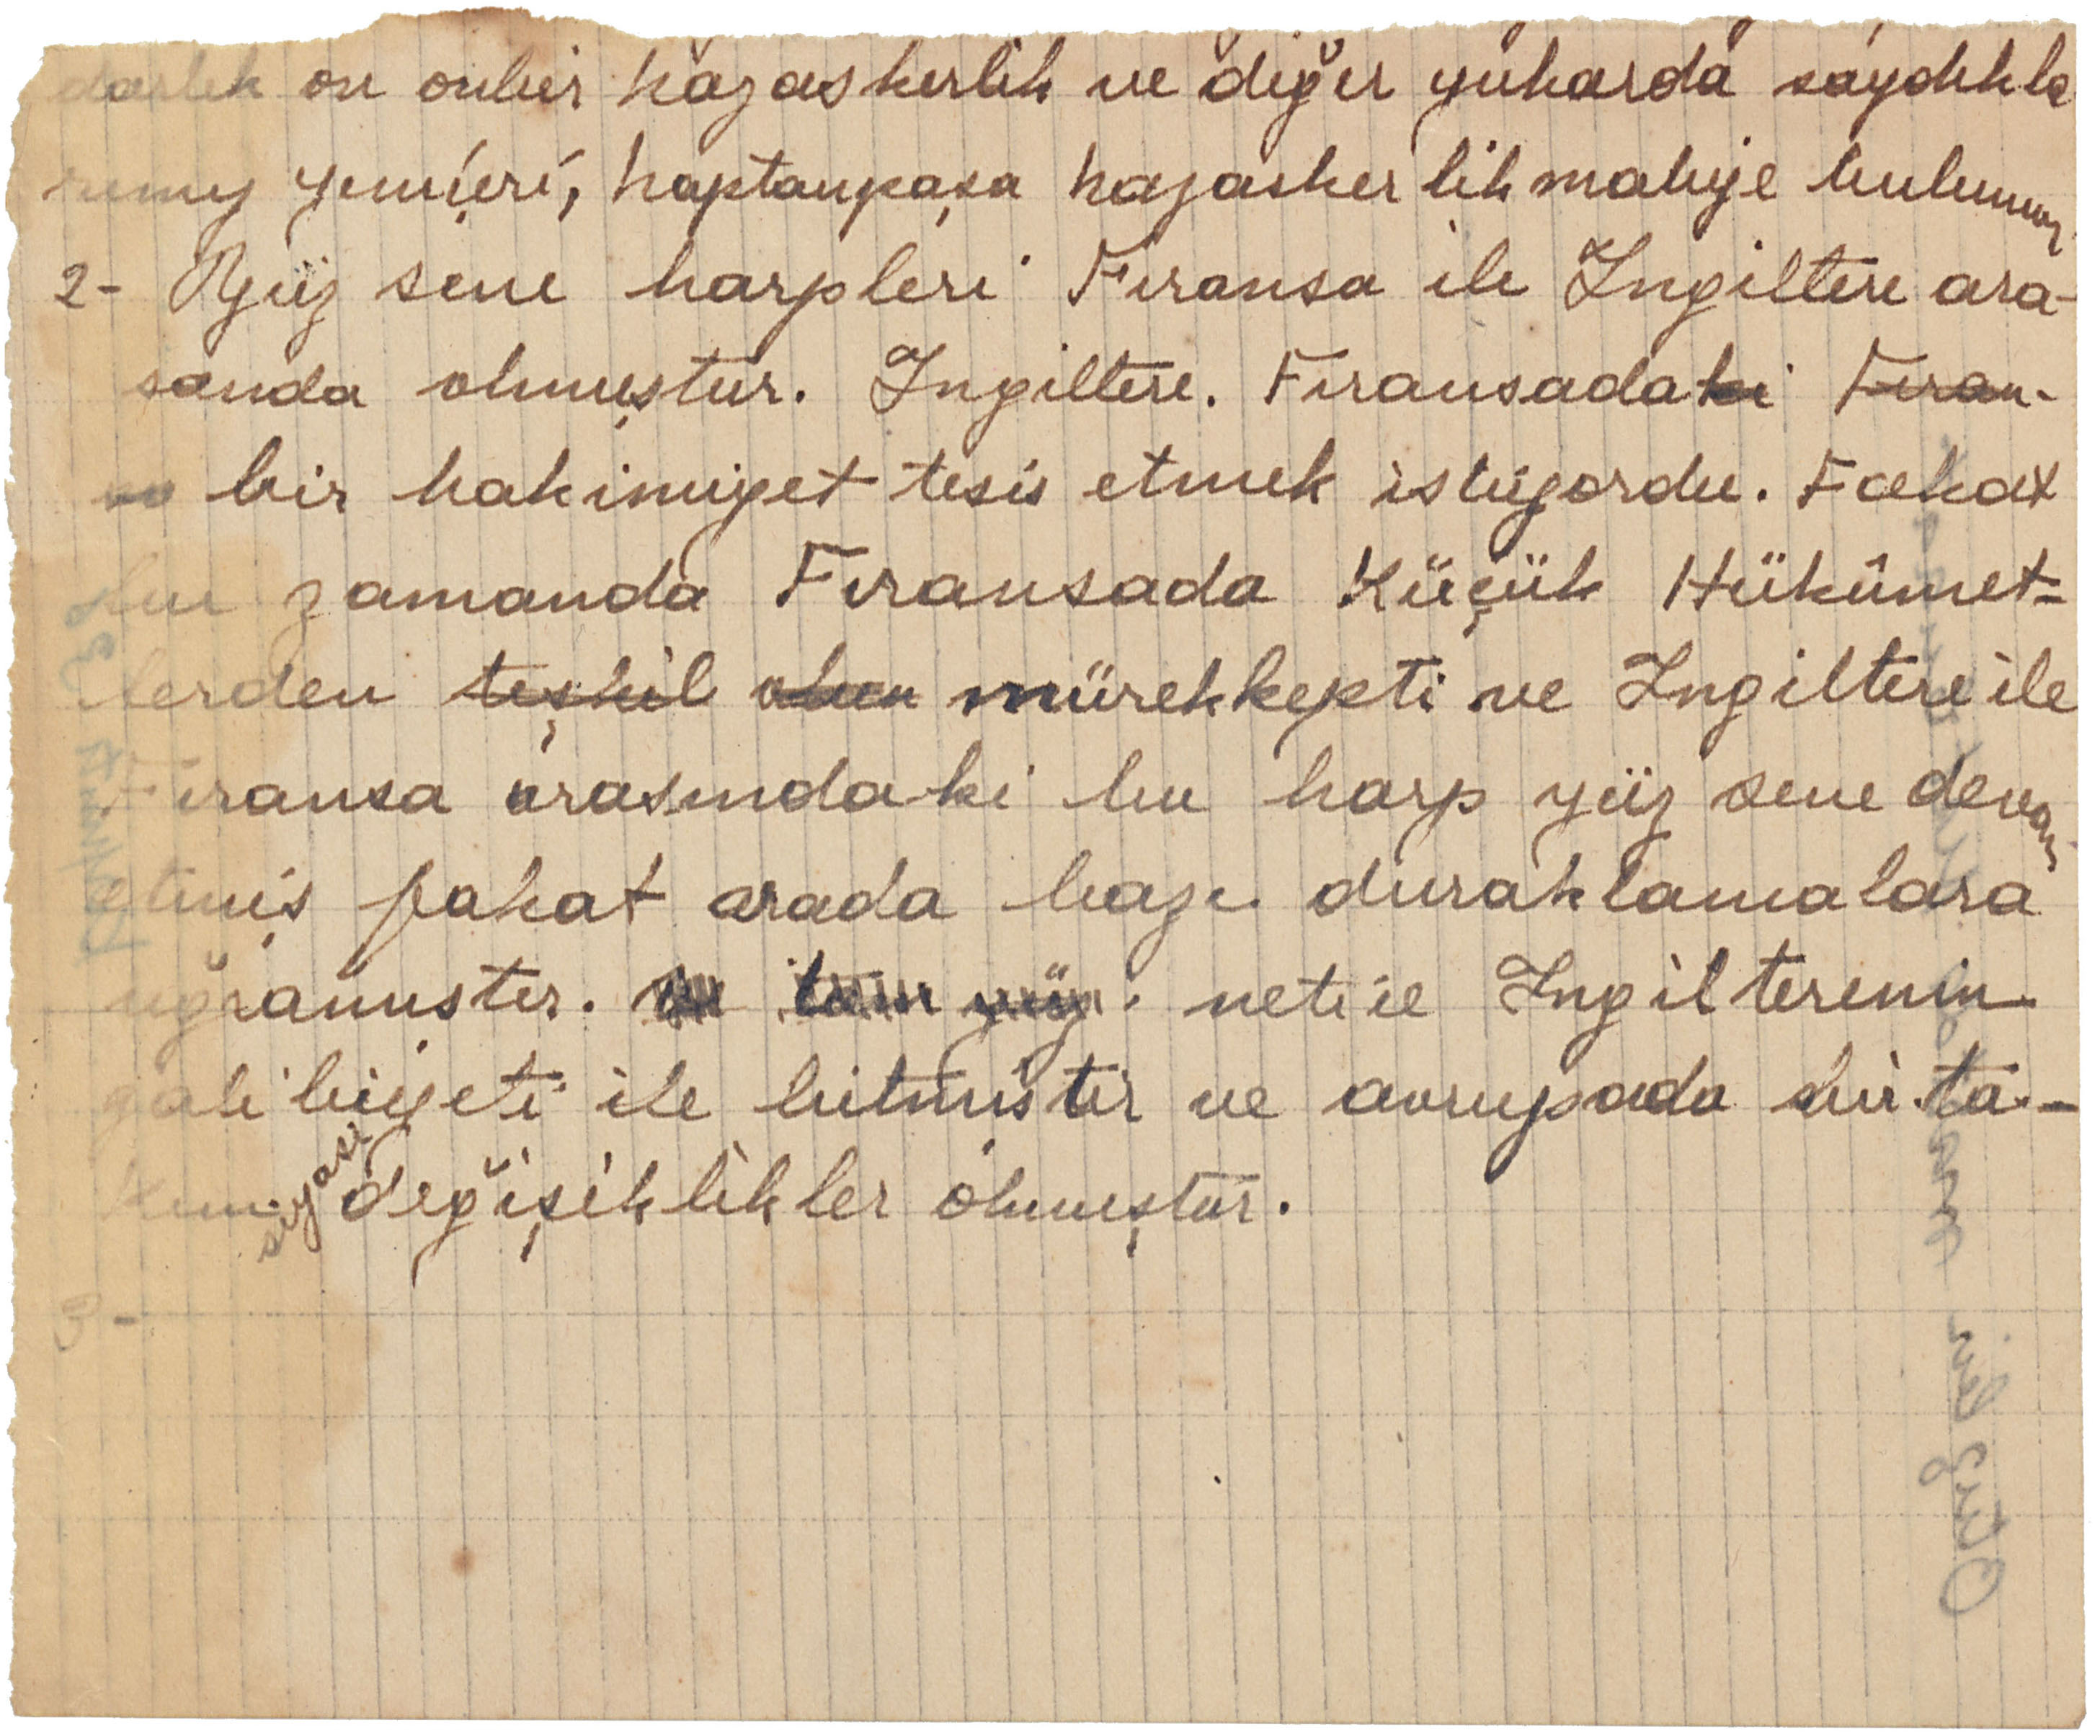 darlık on onbir kazaskerlik ve diğer yukarda saydıkla
rımız yeniçeri, kaptanpaşa kazaskerlik maliye bulunur
2- Yüz sene harpleri Firansa ile İngiltere ara-
sanda olmuştur. İngiltere. Firansadaki Firan-
bir hakimiyet tesis etmek istiyordu. Fakat
bu zamanda Firansada Küçük Hükûmet-
lerden teşkil olan mürekkepti ve İngiltere ile
Firansa arasındaki bu harp yüz sene devam
etmiş fakat arada bazı duraklamalara
uğramıştır. tam yüz netice İngilterenin
galibiyeti ile bitmiştir ve avrupada bir ta-
kım siyasi değişiklikler olmuştur.
3-